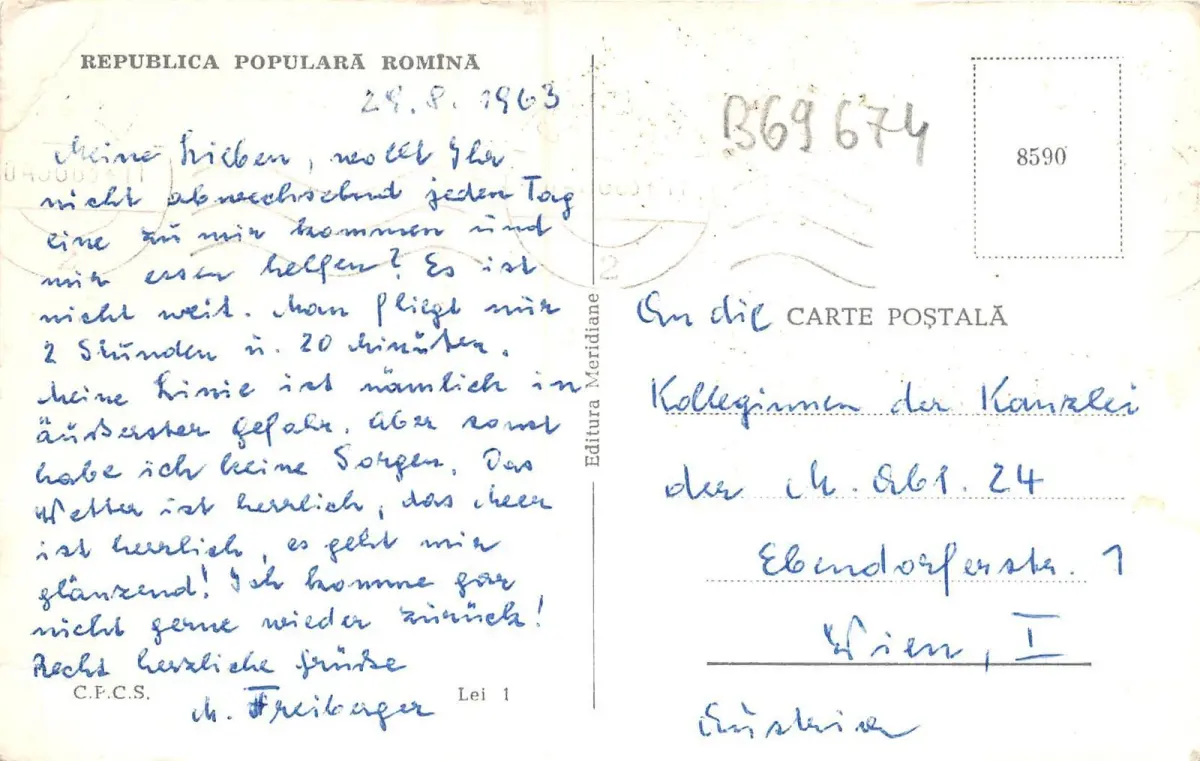 REPUBLICA POPULARĂ ROMÎNĂ
29.8.1963
Meine Lieben, wollt Ihr
nicht abwechselnd jeden Tag
eine zu mir kommen und
mir essen helfen? Es ist
nicht weit. Man fliegt nur
2 Stunden u. 20 Minuten.
Meine Linie ist nämlich in
äußerster Gefahr. Aber sonst
habe ich keine Sorgen. Das
Wetter ist herrlich, das Meer
ist herrlich, es geht mir
glänzend! Ich komme gar
nicht gerne wieder zurück!
Recht herzliche Grüße
M. Freiberger
C.P.C.S.
Lei 1
Editura Meridiane
B69674
8590
An die
CARTE POȘTALĂ
Kolleginnen der Kanzlei
der M. Abt. 24
Ebendorferstr. 1
Wien, I
Austria